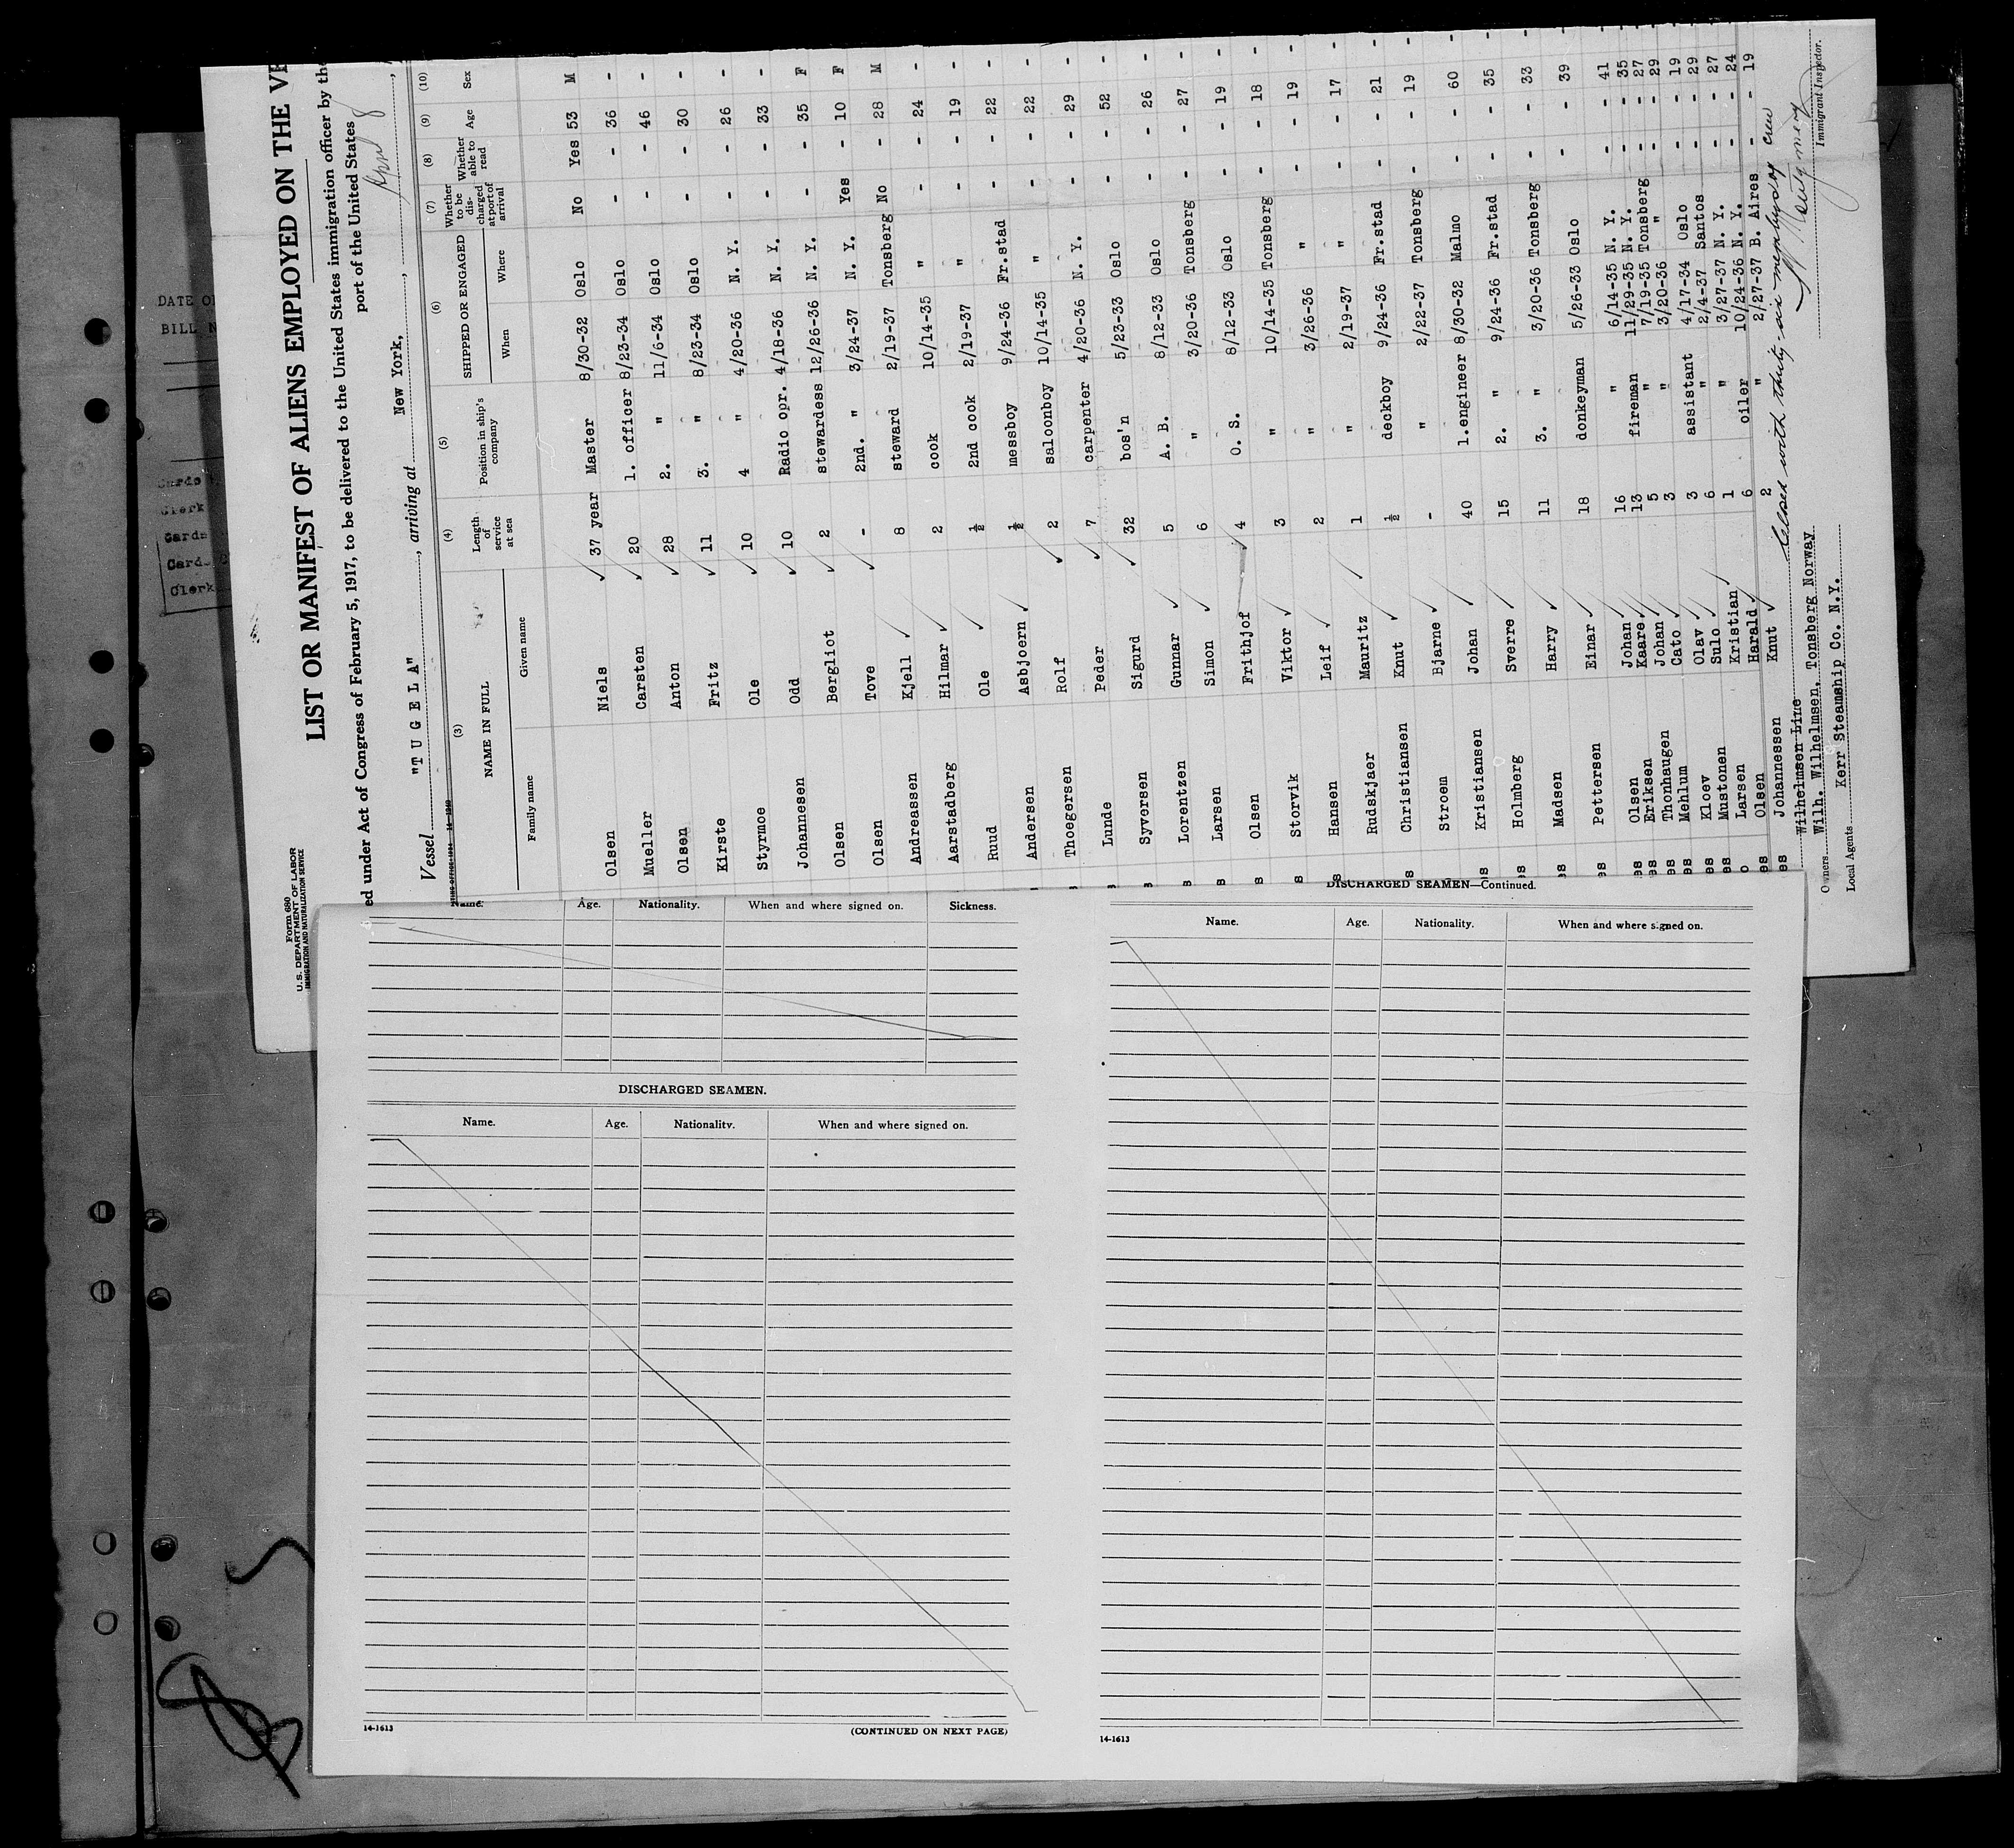 Form 680
U. S. DEPARTMENT OF LABOR
IMMIGRATION AND NATURALIZATION SERVICE
LIST OR MANIFEST OF ALIENS EMPLOYED ON THE VE
ed under Act of Congress of February 5, 1917, to be delivered to the United States immigration officer by th
port of the United States
Vessel "T U G E L A", arriving at New York, April 8,
(3) (4) (5) (6) (7) (8) (9) (10)
NAME IN FULL Length of service at sea Position in ship's company SHIPPED OR ENGAGED Whether to be discharged at port of arrival Whether able to read Age Sex
Family name Given name When Where
Olsen Niels 37 year Master 8/30-32 Oslo No Yes 53 M
Mueller Carsten 20 1. officer 8/23-34 Oslo - - 36 -
Olsen Anton 28 2. " 11/6-34 Oslo - - 46 -
Kirste Fritz 11 3. " 8/23-34 Oslo - - 30 -
Styrmoe Ole 10 4 " 4/20-36 N. Y. - - 26 -
Johannesen Odd 10 Radio opr. 4/18-36 N. Y. - - 33 -
Olsen Bergliot 2 stewardess 12/26-36 N. Y. - - 35 F
Olsen Tove - 2nd. " 3/24-37 N. Y. Yes - 10 F
Andreassen Kjell 8 steward 2/19-37 Tonsberg No - 28 M
Aarstadberg Hilmar 2 cook 10/14-35 " - - 24 -
Ruud Ole ½ 2nd cook 2/19-37 " - - 19 -
Andersen Asbjoern ½ messboy 9/24-36 Fr.stad - - 22 -
Thoegersen Rolf 2 saloonboy 10/14-35 " - - 22 -
Lunde Peder 7 carpenter 4/20-36 N. Y. - - 29 -
Syversen Sigurd 32 bos'n 5/23-33 Oslo - - 52 -
Lorentzen Gunnar 5 A. B. 8/12-33 Oslo - - 26 -
Larsen Simon 6 " 3/20-36 Tonsberg - - 27 -
Olsen Frithjof 4 O. S. 8/12-33 Oslo - - 19 -
Storvik Viktor 3 " 10/14-35 Tonsberg - - 18 -
Hansen Leif 2 " 3/26-36 " - - 19 -
Rudskjaer Mauritz 1 " 2/19-37 " - - 17 -
Christiansen Knut ½ deckboy 9/24-36 Fr.stad - - 21 -
Stroem Bjarne - " 2/22-37 Tonsberg - - 19 -
Kristiansen Johan 40 1.engineer 8/30-32 Malmo - - 60 -
Holmberg Sverre 15 2. " 9/24-36 Fr.stad - - 35 -
Madsen Harry 11 3. " 3/20-36 Tonsberg - - 33 -
Pettersen Einar 18 donkeyman 5/26-33 Oslo - - 39 -
Olsen Johan 16 " 6/14-35 N. Y. - - 41 -
Eriksen Kaare 13 fireman 11/29-35 N. Y. - - 35 -
Thonhaugen Johan 5 " 7/19-35 Tonsberg - - 27 -
Mehlum Cato 3 " 3/20-36 " - - 29 -
Kloev Olav 3 assistant 4/17-34 Oslo - - 19 -
Mustonen Sulo 6 " 2/4-37 Santos - - 29 -
Larsen Kristian 1 " 3/27-37 N. Y. - - 27 -
Olsen Harald 6 oiler 10/24-36 N. Y. - - 24 -
Johannessen Knut 2 " 2/27-37 B. Aires - - 19 -
Wilhelmsen Line
with thirty-six members of crew
Owners Wilh. Wilhelmsen, Tonsberg Norway
Immigrant Inspector.
Local Agents Kerr Steamship Co. N.Y.
DATE O
BILL N
Cards
Clerk
Cards
Cards
Clerk
Name. Age. Nationality. When and where signed on. Sickness.
DISCHARGED SEAMEN.
Name. Age. Nationality. When and where signed on.
14-1613
(CONTINUED ON NEXT PAGE)
DISCHARGED SEAMEN—Continued.
Name. Age. Nationality. When and where signed on.
14-1613